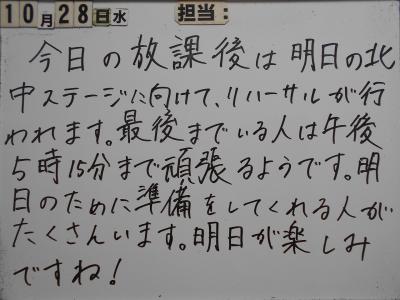 10月28日水 担当:
今日の放課後は明日の北
中ステージに向けて、リハーサルが行
われます。最後までいる人は午後
5時15分まで頑張るようです。明
日のために準備をしてくれる人が
たくさんいます。明日が楽しみ
ですね!